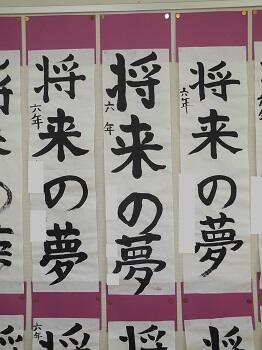 将来の夢
六年
将来の夢
六年
将来の夢
六年
将来の夢
六年
将
将
将
六年